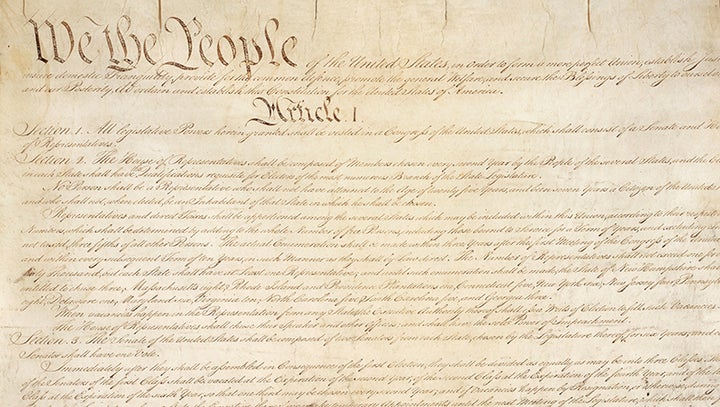 We the People of the United States, in Order to form a more perfect Union, establish Just
insure domestic Tranquility, provide for the common defence, promote the general Welfare, and secure the Blessings of Liberty to ourselves
and our Posterity, do ordain and establish this Constitution for the United States of America.
Article I.
Section 1. All legislative Powers herein granted shall be vested in a Congress of the United States, which shall consist of a Senate and
of Representatives.
Section 2. The House of Representatives shall be composed of Members chosen every second Year by the People of the several States, and the
in each State shall have the Qualifications requisite for Electors of the most numerous Branch of the State Legislature.
No Person shall be a Representative who shall not have attained to the Age of twenty five Years, and been seven Years a Citizen of the United
and who shall not, when elected, be an Inhabitant of that State in which he shall be chosen.
Representatives and direct Taxes shall be apportioned among the several States which may be included within this Union, according to their
Numbers, which shall be determined by adding to the whole Number of free Persons, including those bound to Service for a Term of Years, and excluding
not taxed, three fifths of all other Persons. The actual Enumeration shall be made within three Years after the first Meeting of the Congress of the
and within every subsequent Term of ten Years, in such Manner as they shall by Law direct. The Number of Representatives shall not exceed one for
thirty Thousand, but each State shall have at Least one Representative; and until such enumeration shall be made, the State of New Hampshire shall
entitled to chuse three, Massachusetts eight, Rhode Island and Providence Plantations one, Connecticut five, New York six, New Jersey four,
eight, Delaware one, Maryland six, Virginia ten, North Carolina five, South Carolina five, and Georgia three.
When vacancies happen in the Representation from any State, the Executive Authority thereof shall issue Writs of Election to fill such Vacancies.
The House of Representatives shall chuse their Speaker and other Officers; and shall have the sole Power of Impeachment.
Section 3. The Senate of the United States shall be composed of two Senators from each State, chosen by the Legislature thereof, for six Years; and
Senator shall have one Vote.
Immediately after they shall be assembled in Consequence of the first Election, they shall be divided as equally as may be into three Classes.
of the Senators of the first Class shall be vacated at the Expiration of the second Year, of the second Class at the Expiration of the fourth Year, and of the
Class at the Expiration of the sixth Year, so that one third may be chosen every second Year; and if Vacancies happen by Resignation, or otherwise, during